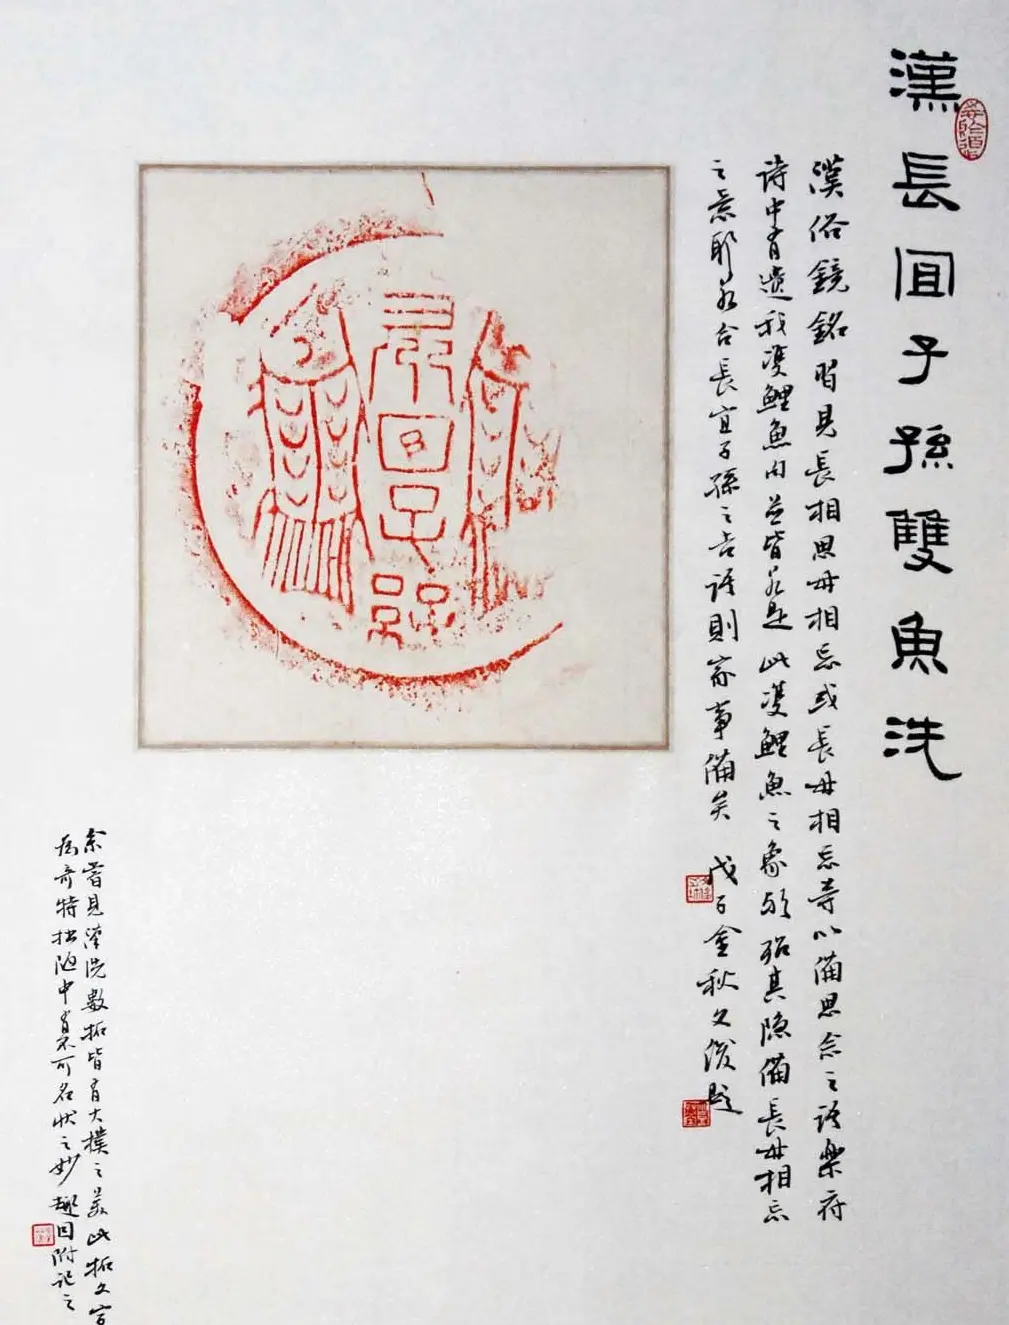 漢長宜子孫雙魚洗
漢俗鏡銘習見長相思毋相忘或長毋相忘等以備思念之語樂府
詩中有遺我雙鯉魚內並皆如是此雙鯉魚之象殆其隱備長毋相忘
之意耶如合長宜子孫之吉語則家事備矣 戊子金秋文俊題
長宜子孫
余嘗見漢洗數拓皆有大樸之美此拓文字
為奇特拙陋中有不可名狀之妙趣因附記之